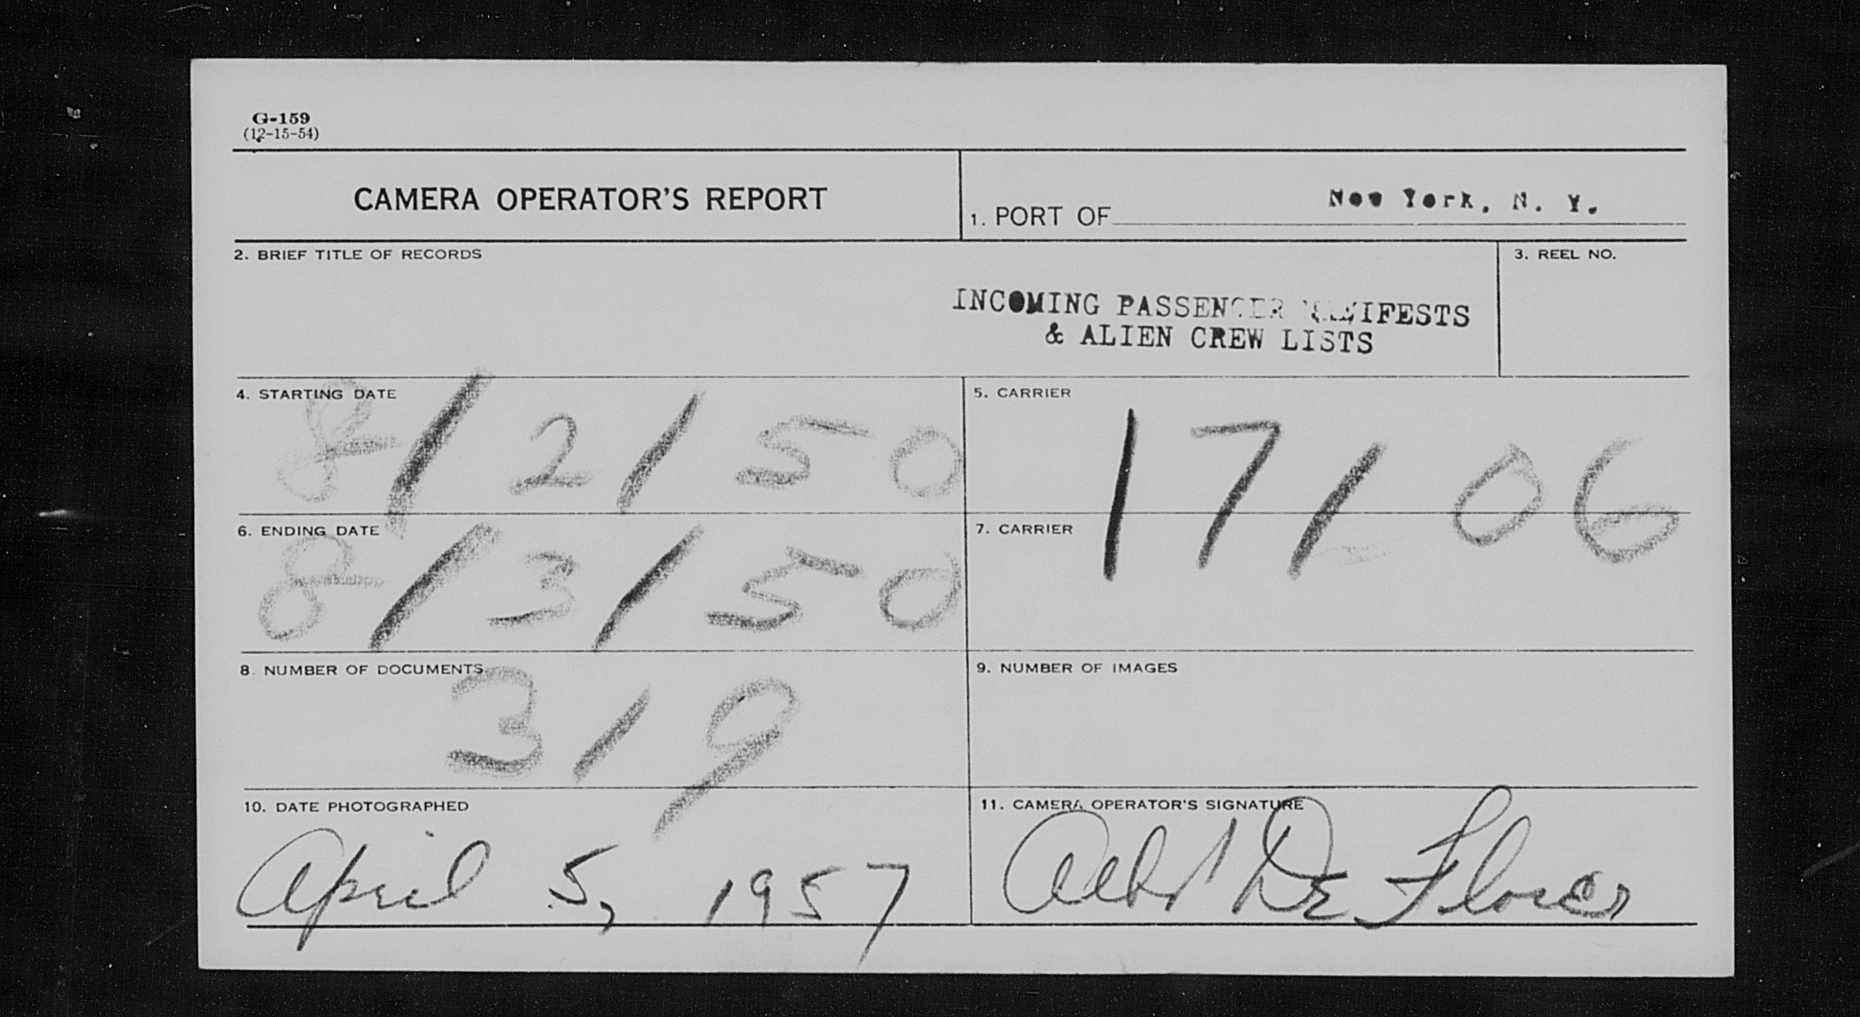 G-159
(12-15-54)
CAMERA OPERATOR'S REPORT
1. PORT OF New York, N. Y.
2. BRIEF TITLE OF RECORDS
INCOMING PASSENGER MANIFESTS
& ALIEN CREW LISTS
3. REEL NO.
4. STARTING DATE
8/2/50
5. CARRIER
17106
6. ENDING DATE
8/3/50
7. CARRIER
8. NUMBER OF DOCUMENTS
319
9. NUMBER OF IMAGES
10. DATE PHOTOGRAPHED
April 5, 1957
11. CAMERA OPERATOR'S SIGNATURE
De